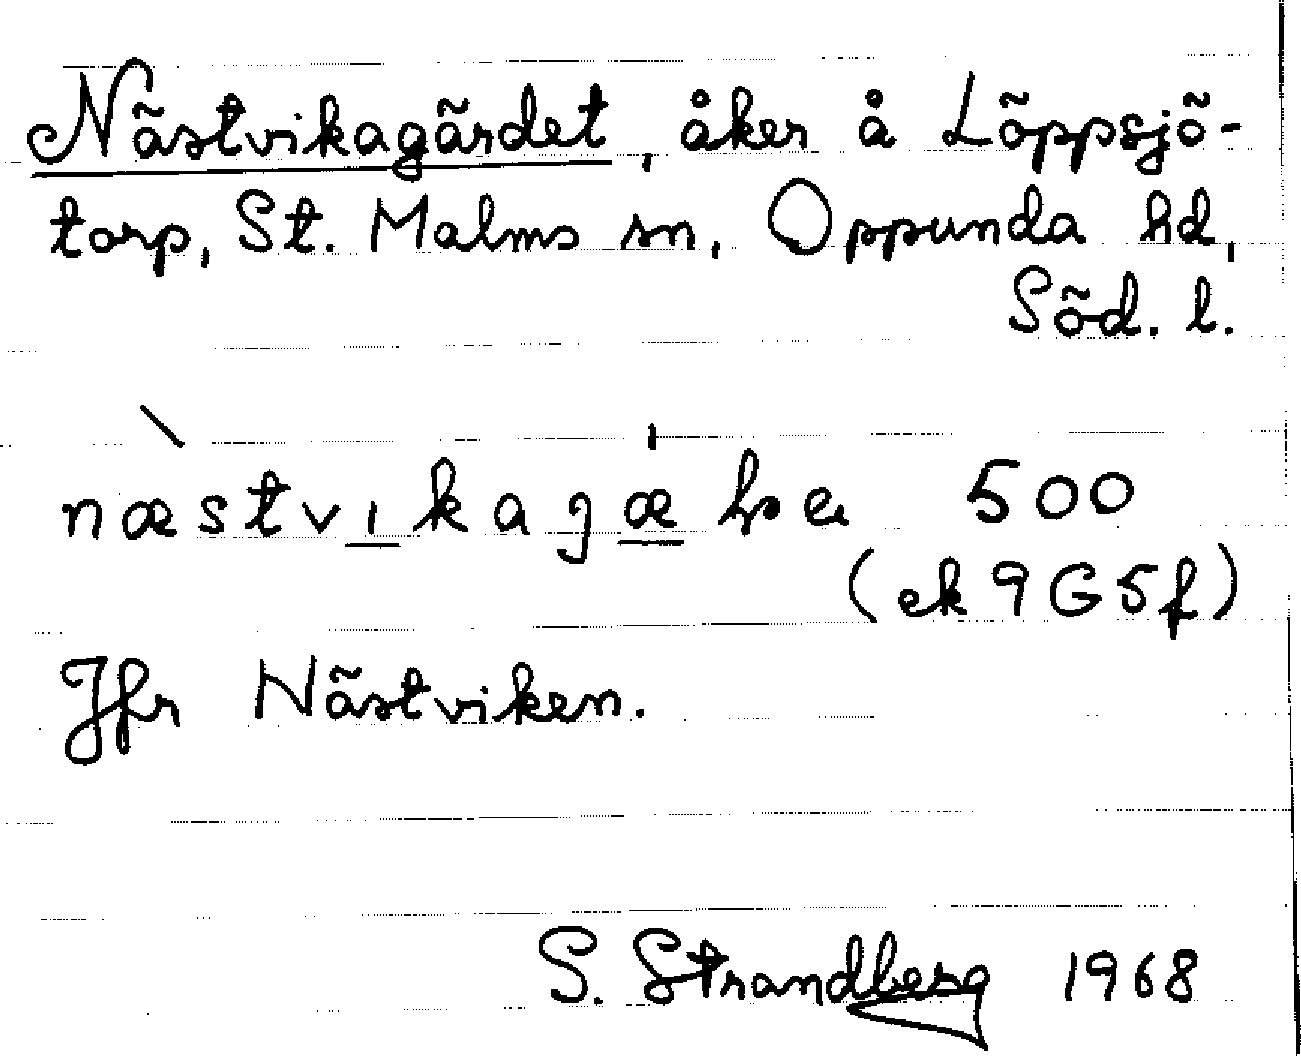 Nästvikagärdet, åker å Löppsjö-
torp, St. Malms sn, Oppunda hd,
Söd. l.
500
(ek 9G5f)
Jfr Nästviken.
S. Strandberg 1968